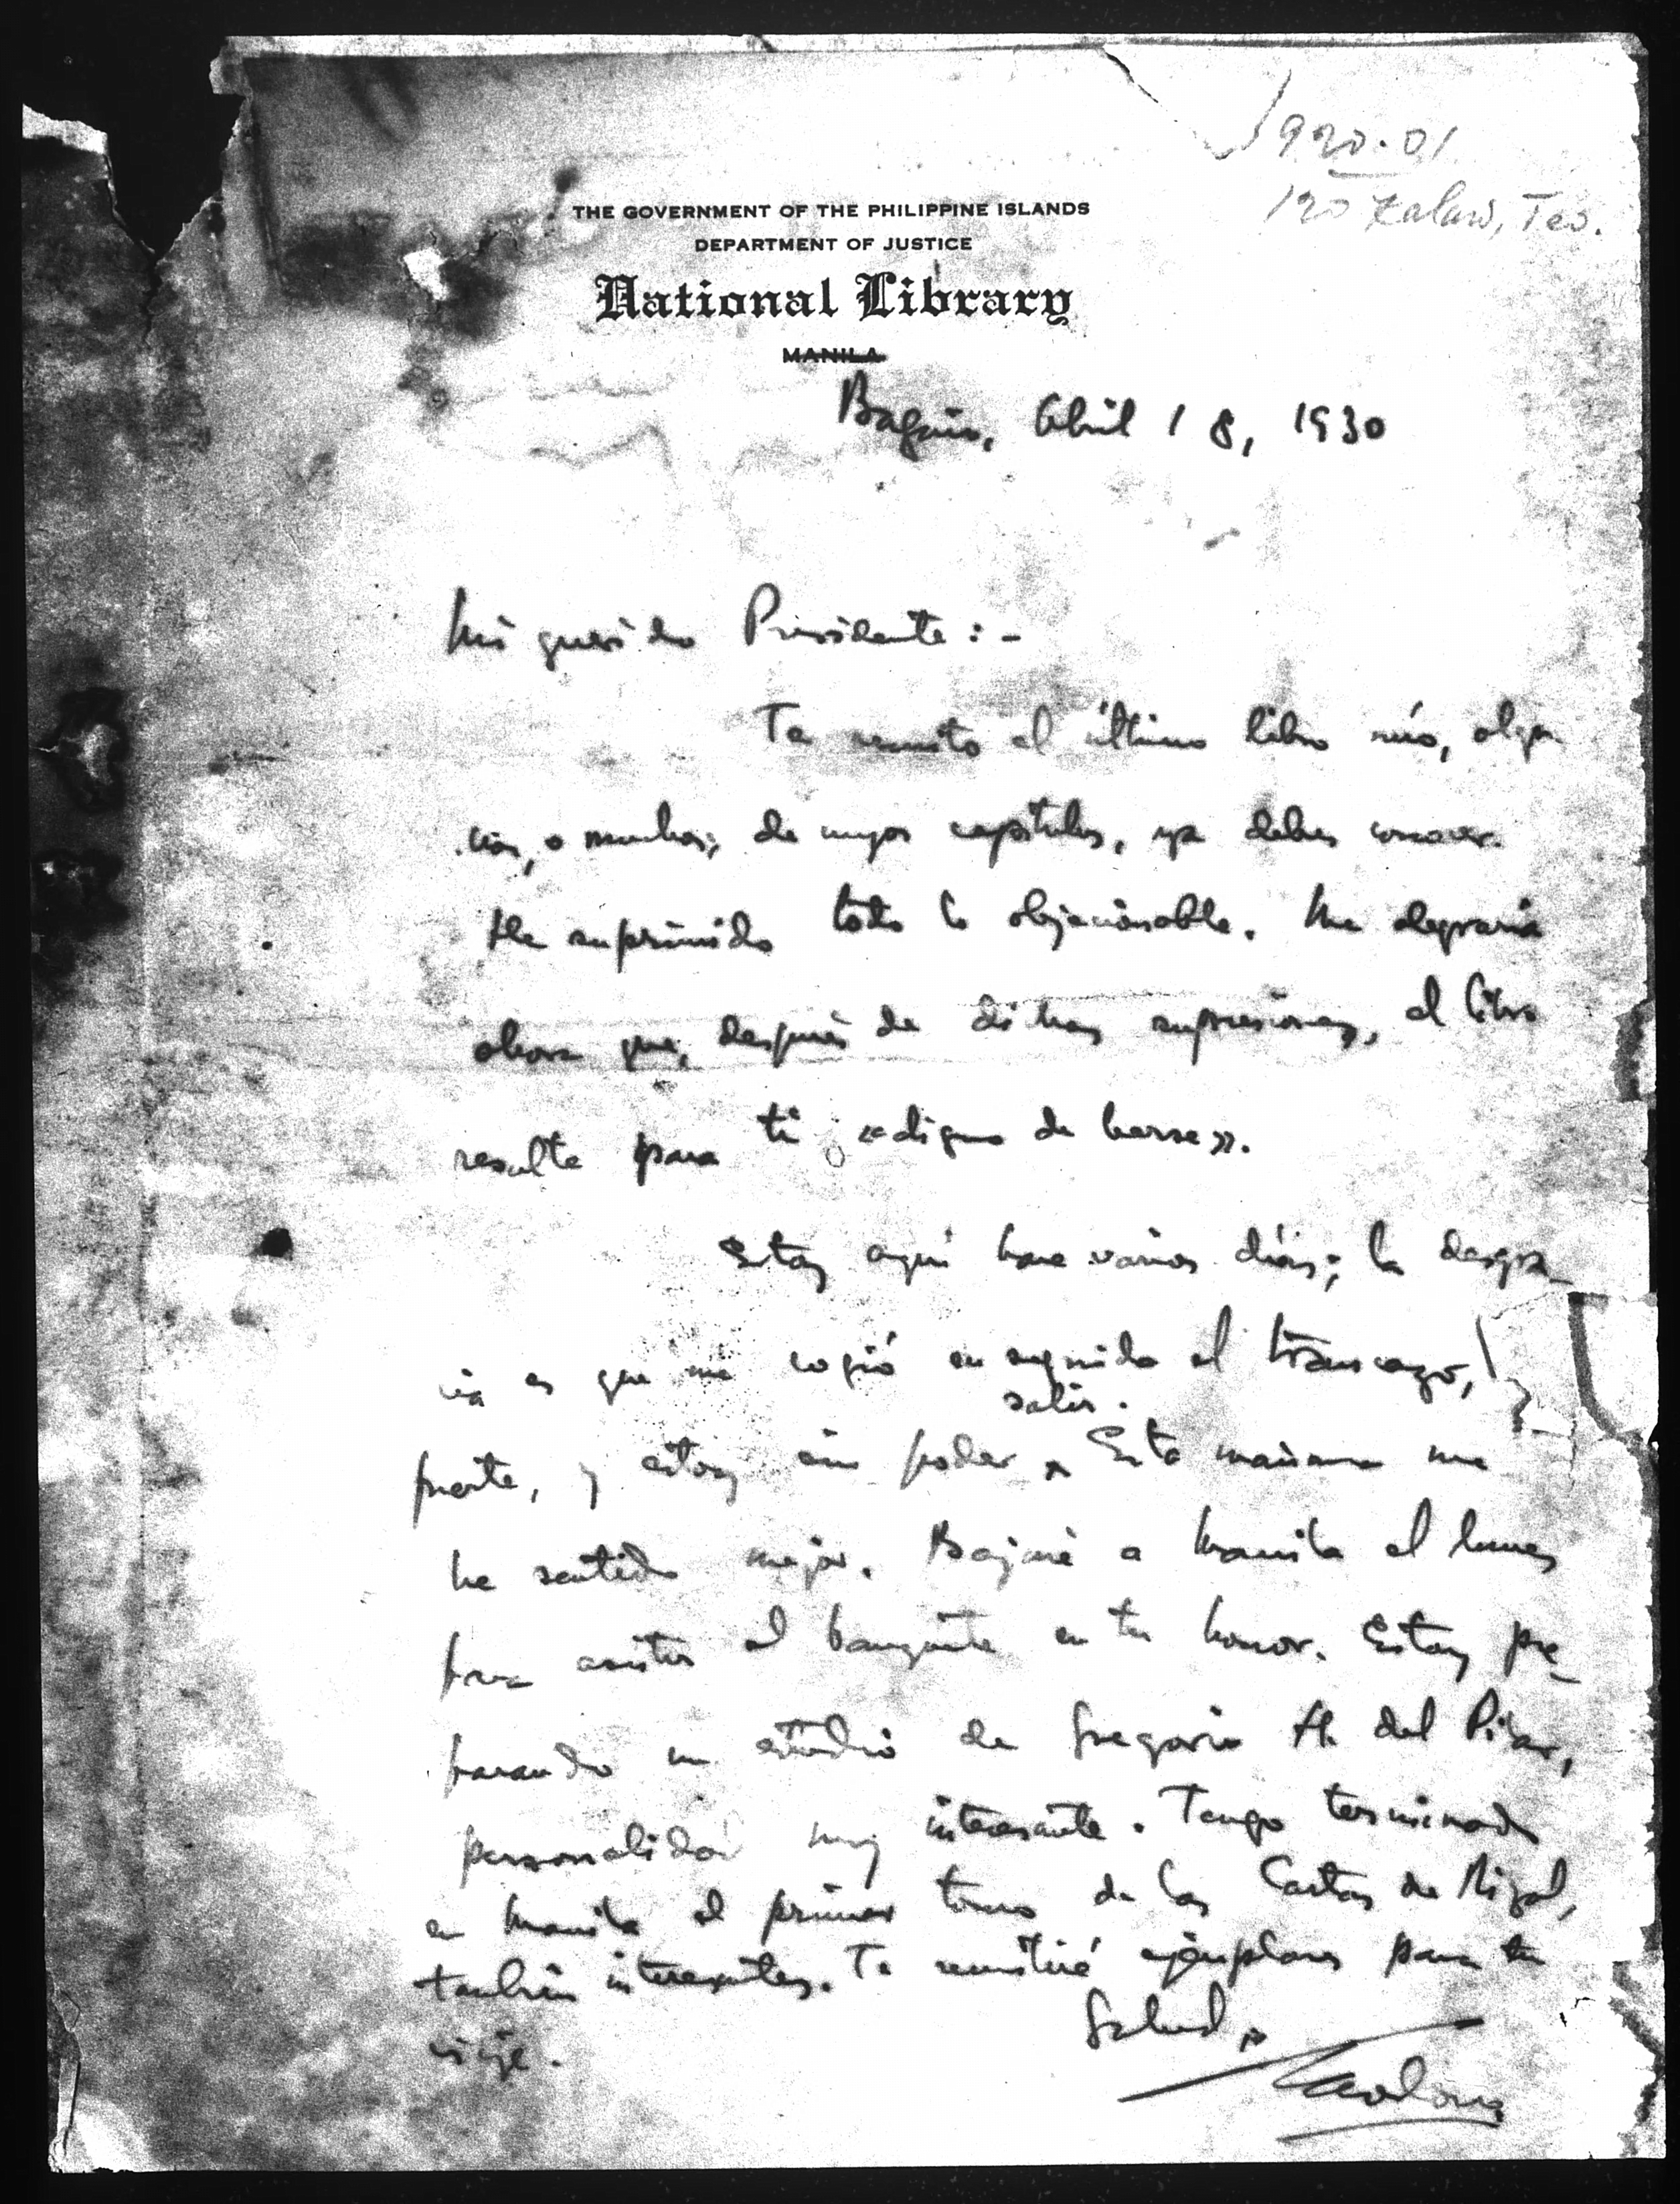 1930-01
120 Kalaw, Teo.
THE GOVERNMENT OF THE PHILIPPINE ISLANDS
DEPARTMENT OF JUSTICE
National Library
MANILA
Baguio, Abril 18, 1930
Mi querido Presidente:-
Te remito el último libro mío,
o muchos, de cuyos capítulos, ya debes conocer.
He suprimido todo lo objecionable. Me alegraria
ahora que, después de dichas supresiones, el libro
resulte para ti «digno de leerse».
Estoy aquí hace varios días; la desgra-
cia es que me cogió en seguida el trancazo,
salir.
fuerte, y estoy sin poder ^ Esta mañana me
he sentido mejor. Bajaré a Manila el lunes
para asistir al banquete en tu honor. Estoy pre-
parando un estudio de Gregorio H. del Pilar,
personalidad muy interesante. Tengo terminado
en Manila el primer tomo de las Cartas de Rizal,
también interesantes. Te remitiré ejemplares para tu
viaje.
Salud,
Teodoro